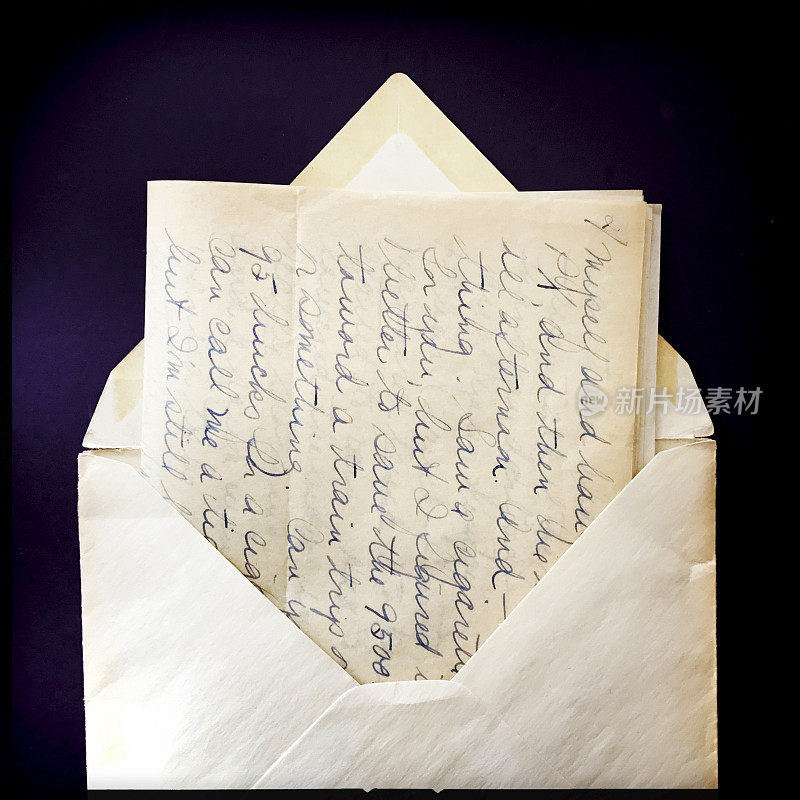 myself and hav
PX, and then the
afternoon. And —
thing. I saw a cigarett
for you, but I figured i
better to save the 9500
toward a train trip o
something. Can y
95 bucks a cig
can call me a ti
but I'm still
new